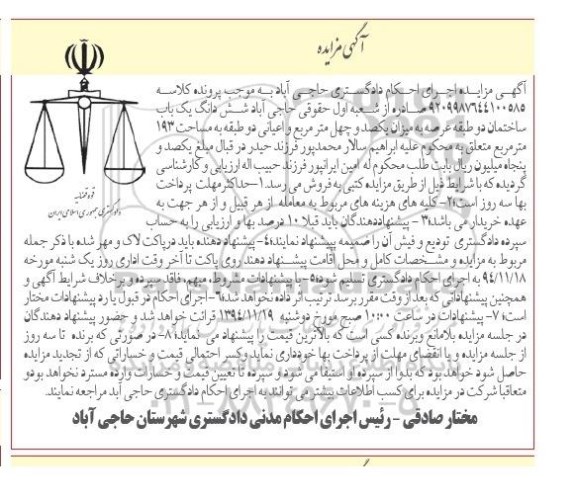 آگهی مزایده
آگهی مزایده اجرای احکام دادگستری حاجی آباد به موجب پرونده کلاسه
۹۲۰۹۹۸۷۶۴۴۱۰۰۵۸۵ صادره از شعبه اول حقوقی حاجی آباد شش دانگ یک باب
ساختمان دو طبقه عرصه به میزان یکصد و چهل متر مربع و اعیانی دو طبقه به مساحت ۱۹۳
مترمربع متعلق به محکوم علیه ابراهیم سالار محمدپور فرزند حیدر در قبال مبلغ یکصد و
پنجاه میلیون ریال بابت طلب محکوم له امین ایرانپور فرزند حبیب اله ارزیابی و کارشناسی
گردیده که با شرایط ذیل از طریق مزایده کتبی به فروش می رسد.۱-حداکثر مهلت پرداخت
بها سه روز است۲- کلیه های هزینه های مربوط به معامله از هر قبیل و از هر جهت به
عهده خریدار می باشد۳- پیشنهاددهندگان باید قبلا ۱۰ درصد بها و ارزیابی را به حساب
سپرده دادگستری تودیع و فیش آن را ضمیمه پیشنهاد نمایند۴- پیشنهاد دهنده باید در پاکت لاک و مهر شده با ذکر جمله
مربوط به مزایده و مشخصات کامل و محل اقامت پیشنهاد دهند روی پاکت تا آخر وقت اداری روز یک شنبه مورخه
۹۴/۱۱/۱۸ به اجرای احکام دادگستری تسلیم شود۵-با پیشنهادات مشروط، مبهم، فاقد سپرده و برخلاف شرایط آگهی و
همچنین پیشنهاداتی که بعد از وقت مقرر برسد ترتیب اثر داده نخواهد شد۶-اجرای احکام در قبول یا رد پیشنهادات مختار
است۷- پیشنهادات در ساعت ۱۰:۰۰ صبح مورخ دوشنبه ۱۳۹۴/۱۱/۱۹ قرائت خواهد شد و حضور پیشنهاد دهندگان
در جلسه مزایده بلامانع وبرنده کسی است که بالاترین قیمت را پیشنهاد می نماید۸- در صورتی که برنده تا سه روز
از جلسه مزایده و یا انقضای مهلت از پرداخت بها خودداری نماید وکسر احتمالی قیمت و خساراتی که از تجدید مزایده
حاصل شود خواهد بود که بدوا از سپرده او استیفا می شود و سپرده تا تعیین قیمت و خسارات وارده مسترد نخواهد بود و
متعاقبا شرکت در مزایده برای کسب اطلاعات بیشتر می توانند به اجرای احکام دادگستری حاجی آبد مراجعه نمایند.
مختار صادقی - رئیس اجرای احکام مدنی دادگستری شهرستان حاجی آباد
قوه قضاییه
دادگستری جمهوری اسلامی ایران
۰۲۱-۸۸۳۴۹۶۷۰-۵